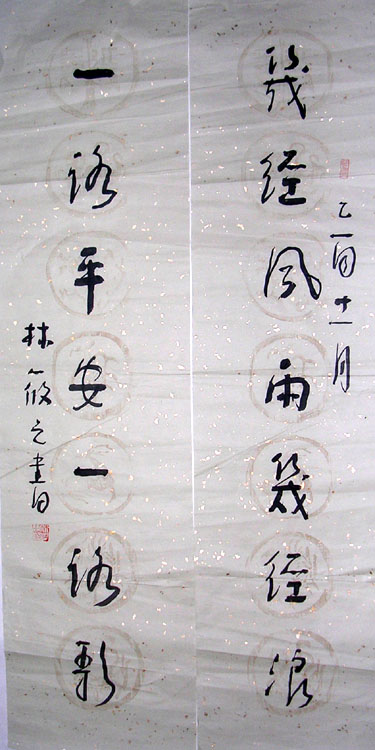 乙酉十一月
幾經風雨幾經浪
一路平安一路歌
林筱之書